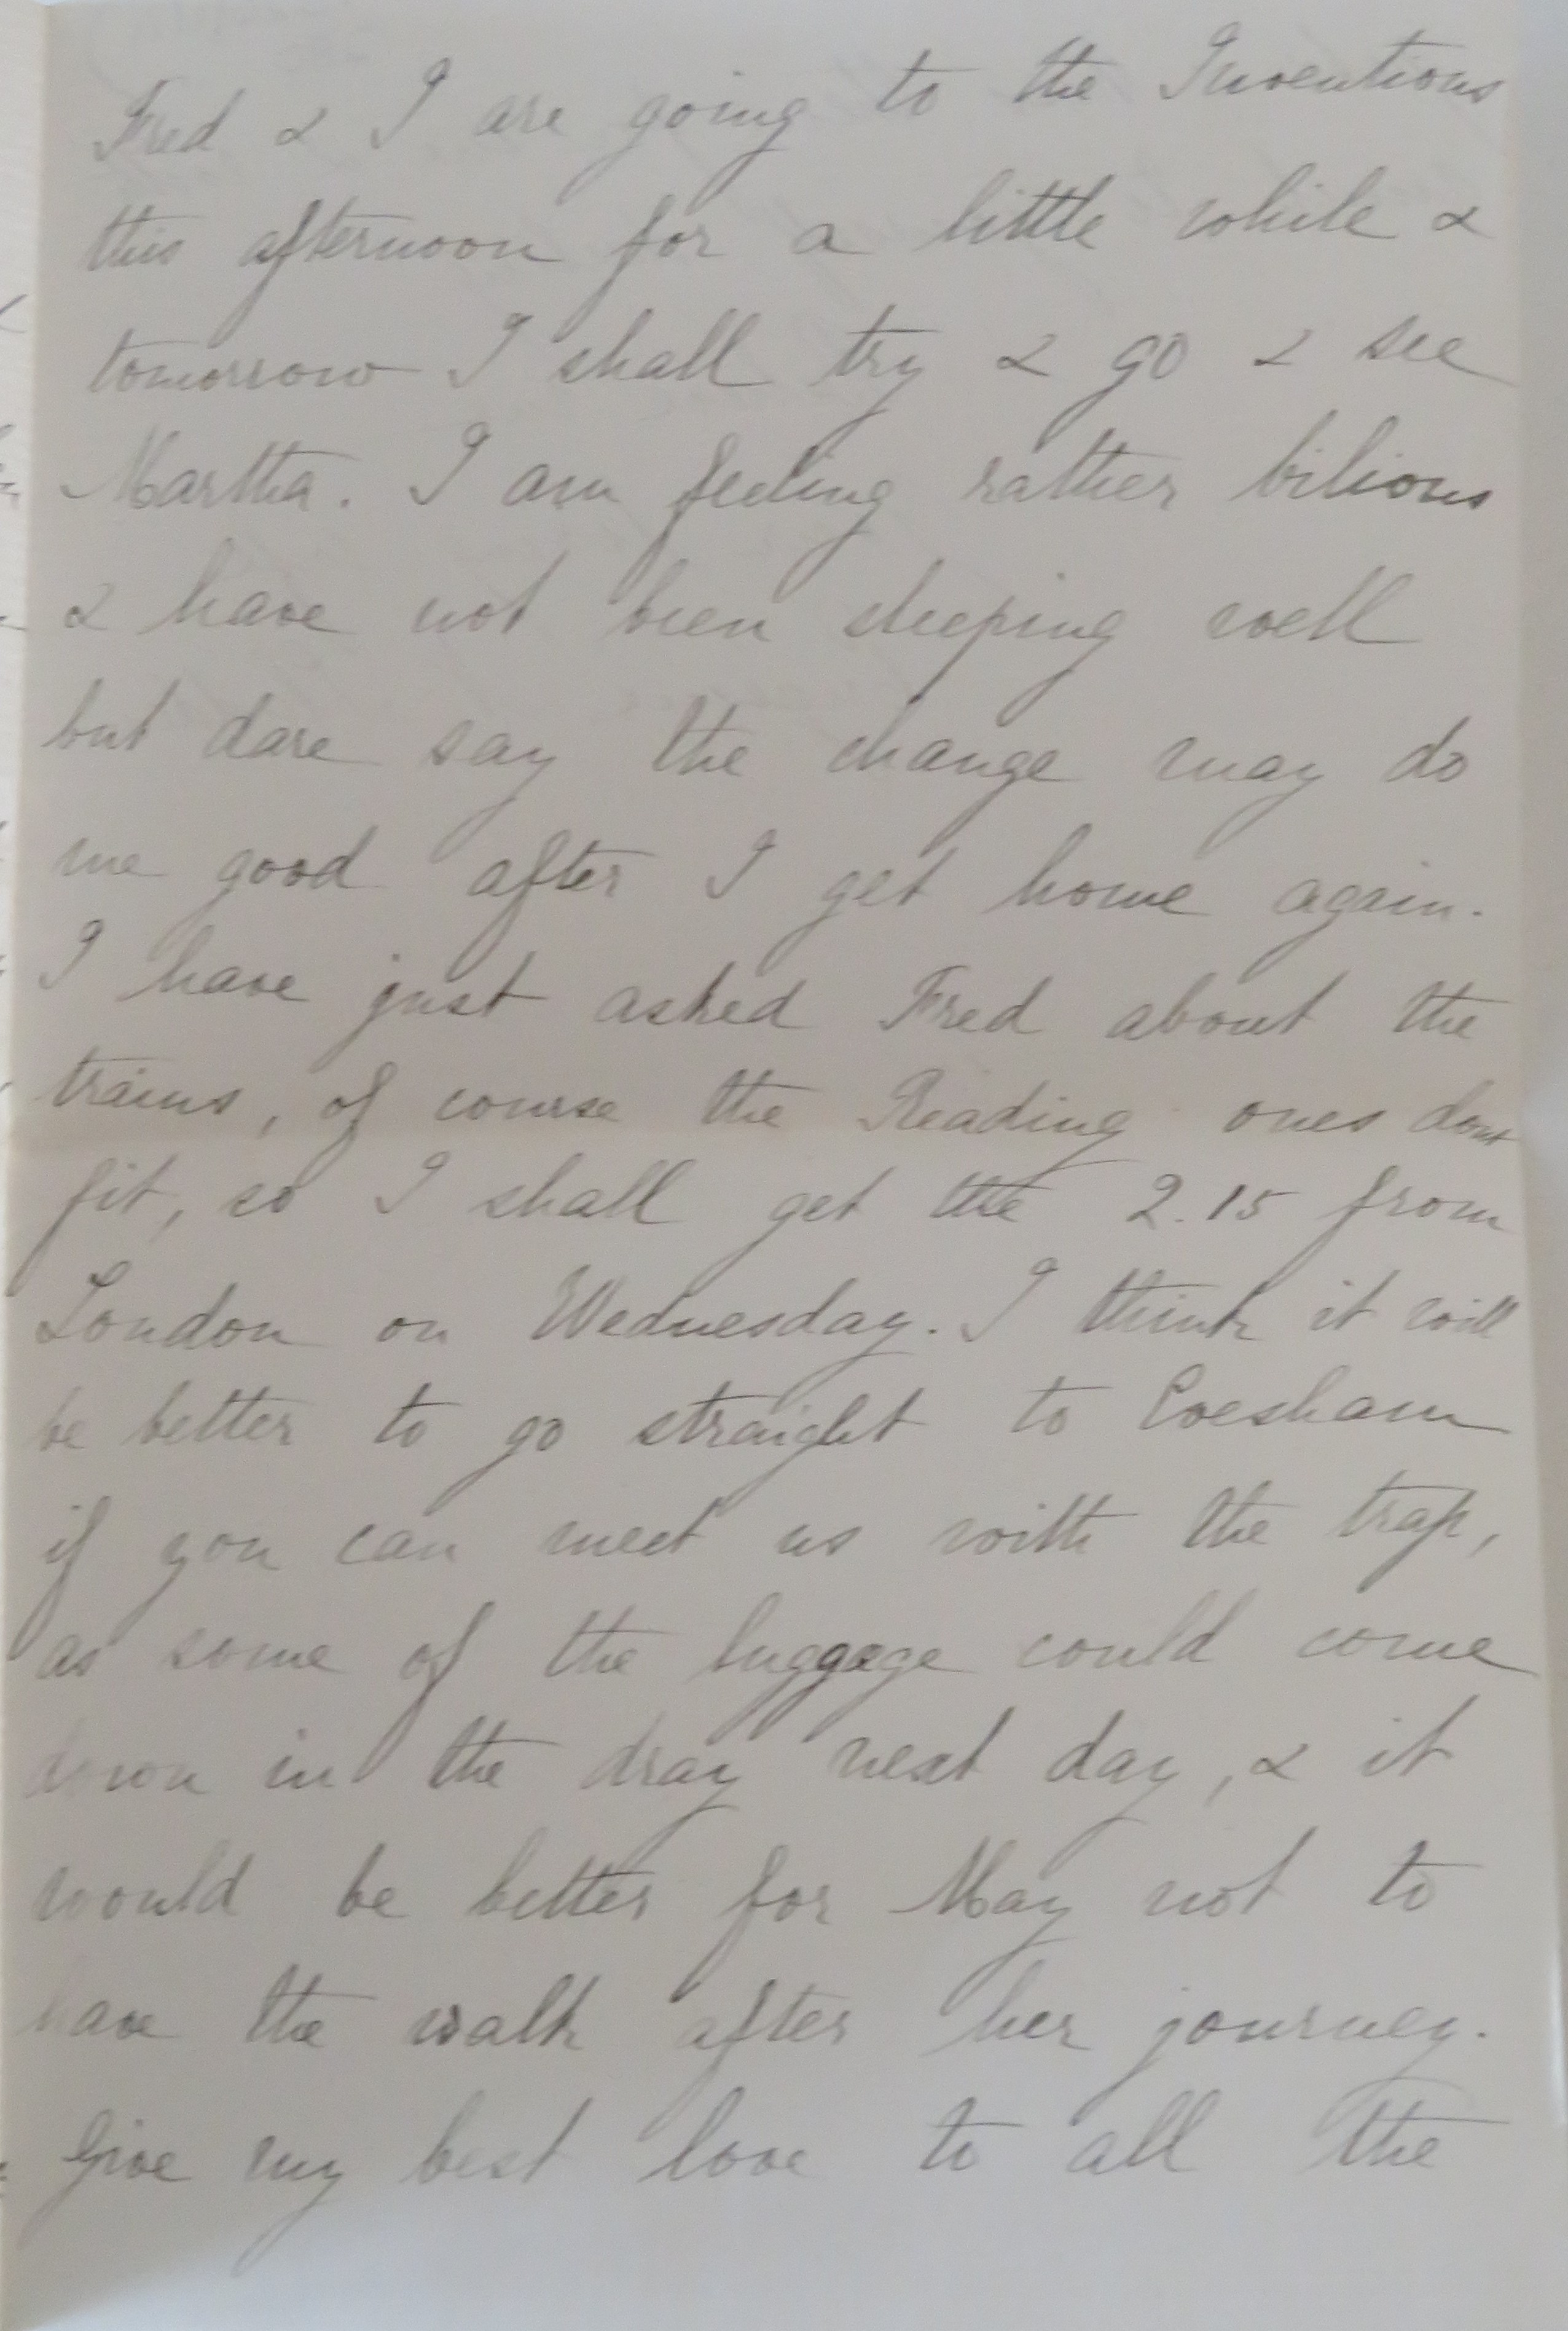 Fred & I are going to the Inventions
this afternoon for a little while &
tomorrow I shall try & go & see
Martha. I am feeling rather bilious
& have not been sleeping well
but dare say the change may do
me good after I get home again.
I have just asked Fred about the
trains, of course the Reading ones dont
fit, so I shall get the 2.15 from
London on Wednesday. I think it will
be better to go straight to Evesham
if you can meet us with the trap,
as some of the luggage could come
down in the dray next day, & it
would be better for May not to
have the walk after her journey.
Give my best love to all the